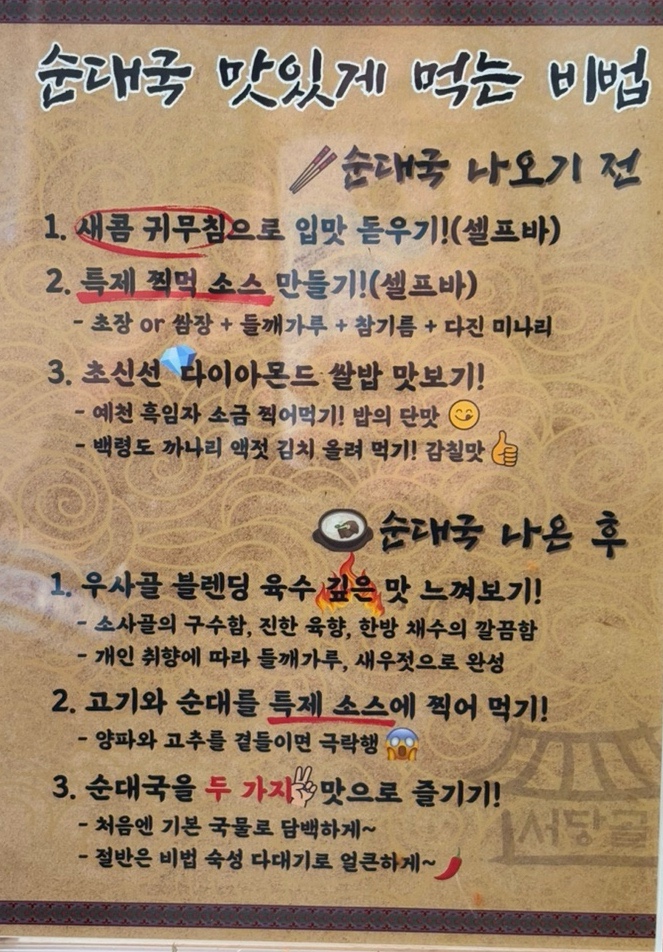 순대국 맛있게 먹는 비법
순대국 나오기 전
1. 새콤 귀무침으로 입맛 돋우기!(셀프바)
2. 특제 찍먹 소스 만들기!(셀프바)
- 초장 or 쌈장 + 들깨가루 + 참기름 + 다진 미나리
3. 초신선 다이아몬드 쌀밥 맛보기!
- 예천 흑임자 소금 찍어먹기! 밥의 단맛
- 백령도 까나리 액젓 김치 올려 먹기! 감칠맛
순대국 나온 후
1. 우사골 블렌딩 육수 깊은 맛 느껴보기!
- 소사골의 구수함, 진한 육향, 한방 채수의 깔끔함
- 개인 취향에 따라 들깨가루, 새우젓으로 완성
2. 고기와 순대를 특제 소스에 찍어 먹기!
- 양파와 고추를 곁들이면 극락행
3. 순대국을 두 가지 맛으로 즐기기!
- 처음엔 기본 국물로 담백하게~
- 절반은 비법 숙성 다대기로 얼큰하게~
서당골